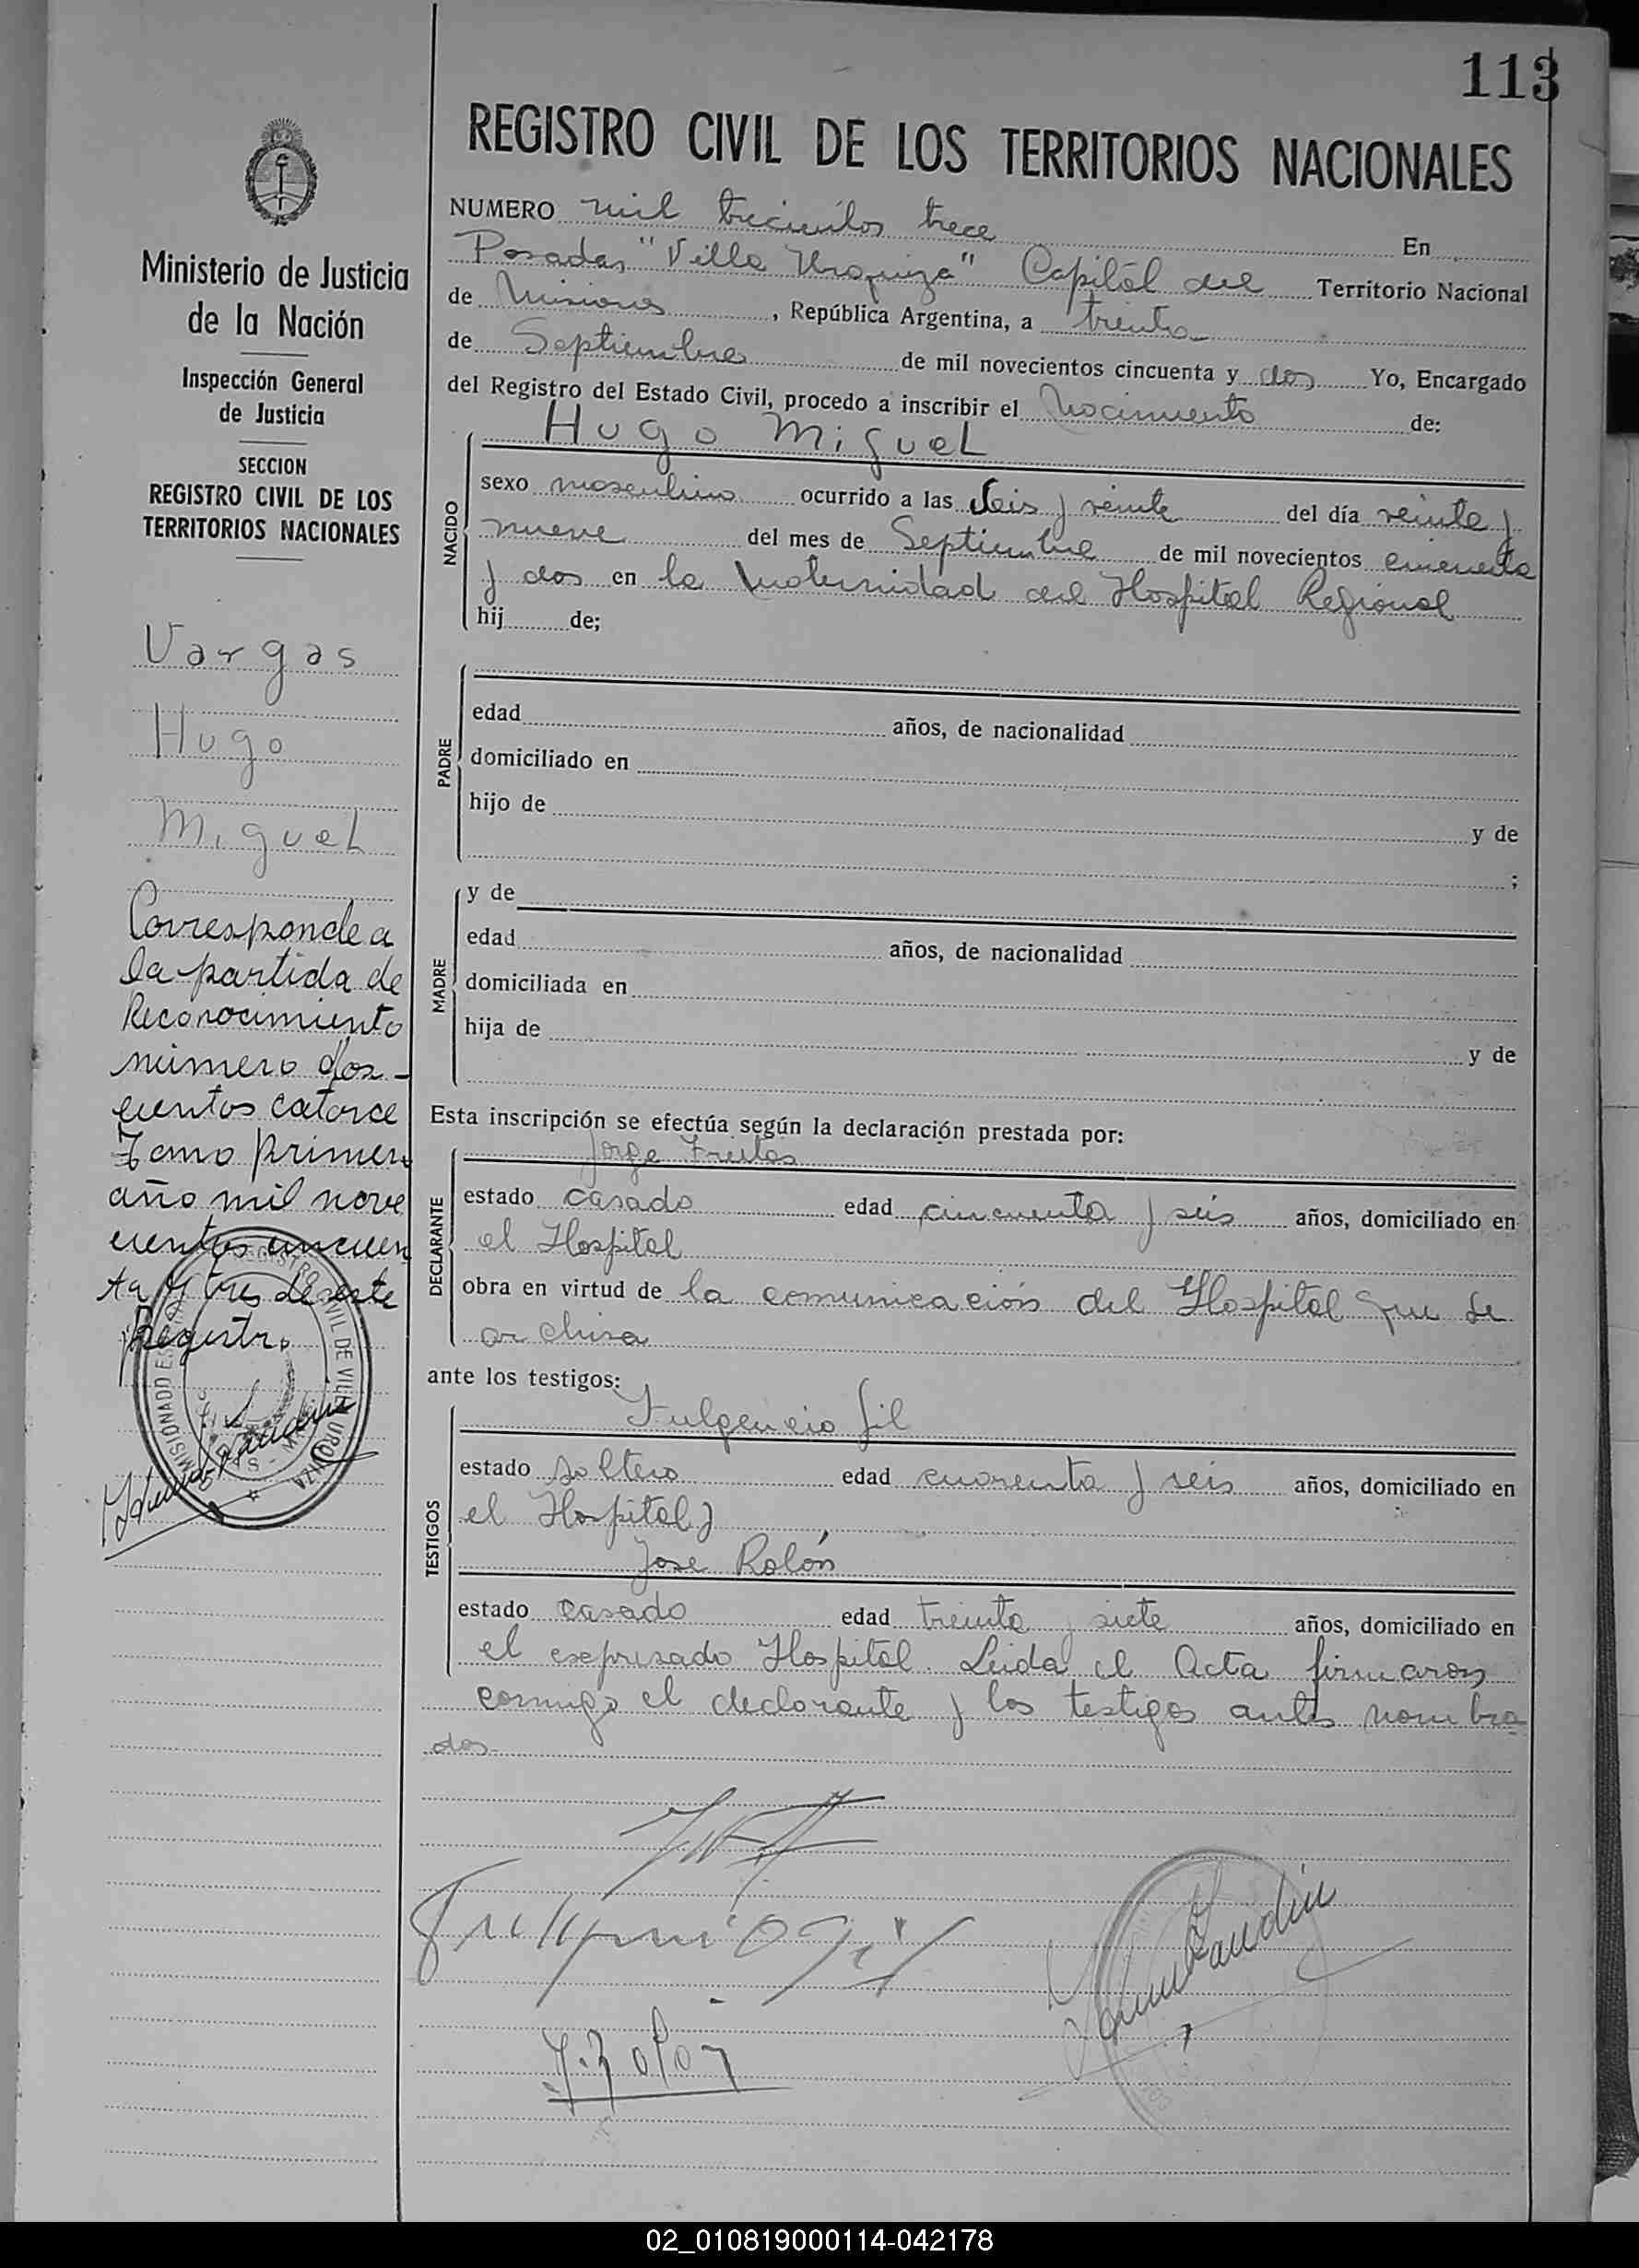 113
REGISTRO CIVIL DE LOS TERRITORIOS NACIONALES
NUMERO mil trecientos trece En
Posadas "Villa Urquiza" Capital del Territorio Nacional
de Misiones, República Argentina, a treinta
de Septiembre de mil novecientos cincuenta y dos Yo, Encargado
del Registro del Estado Civil, procedo a inscribir el Nacimiento de:
NACIDO
Hugo Miguel
sexo masculino ocurrido a las seis y veinte del día veinte y
nueve del mes de Septiembre de mil novecientos cincuenta
y dos en la Maternidad del Hospital Regional
hij de;
PADRE
edad años, de nacionalidad
domiciliado en
hijo de y de
;
MADRE
y de
edad años, de nacionalidad
domiciliada en
hija de y de
Esta inscripción se efectúa según la declaración prestada por:
DECLARANTE
Jorge Freites
estado casado edad cincuenta y seis años, domiciliado en
el Hospital
obra en virtud de la comunicación del Hospital que se
archiva
ante los testigos:
TESTIGOS
Fulgencio Gil
estado soltero edad cuarenta y seis años, domiciliado en
el Hospital y
Jose Rolón
estado casado edad treinta y siete años, domiciliado en
el expresado Hospital. Leida el Acta firmaron
conmigo el declarante y los testigos antes nombra
dos
Fulgencio Gil
J. Rolon
Ministerio de Justicia
de la Nación
Inspección General
de Justicia
SECCION
REGISTRO CIVIL DE LOS
TERRITORIOS NACIONALES
Vargas
Hugo
Miguel
Corresponde a
la partida de
Reconocimiento
número dos-
cientos catorce
Tomo primero
año mil nove
cientos cincuen
ta y tres de este
Registro
REGISTRO CIVIL DE VILLA URQUIZA
02_010819000114-042178